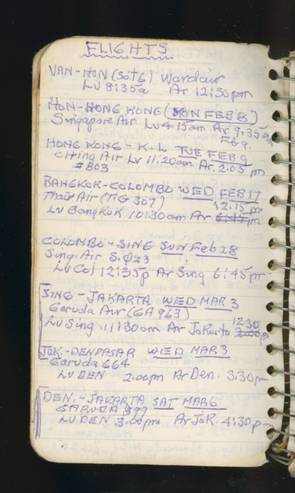 FLIGHTS
VAN-HON (Sat 6) Wardair
LV 8:35a Ar 12:50pm
HON-HONG KONG (MON FEB 8)
Singapore Air Lv 4:15am Ar 9:35a
Feb 9
HONG KONG - K.L TUE FEB 9
Air Lv 11:20am Ar. 2:05 pm
#803
BANGKOK-COLOMBO WED FEB 17
Thai Air (TG 307) 12:15pm
Lv Bangkok 10:30am Ar
COLOMBO-SING SUN Feb 28
Sing. Air S.Q23
Lv Col 12:35p Ar Sing 6:45pm
SING - JAKARTA WED MAR 3
Garuda Air (GA 963)
12:30
Lv Sing 11:30am Ar Jakarta
JAK.-DENPASAR WED MAR 3
Garuda 664
LV DEN 2.00pm Ar Den. 3:30pm
DEN.-JAKARTA SAT MAR 6
GARUDA 899
LV DEN 3.00pm Ar JaK. 4:30pm